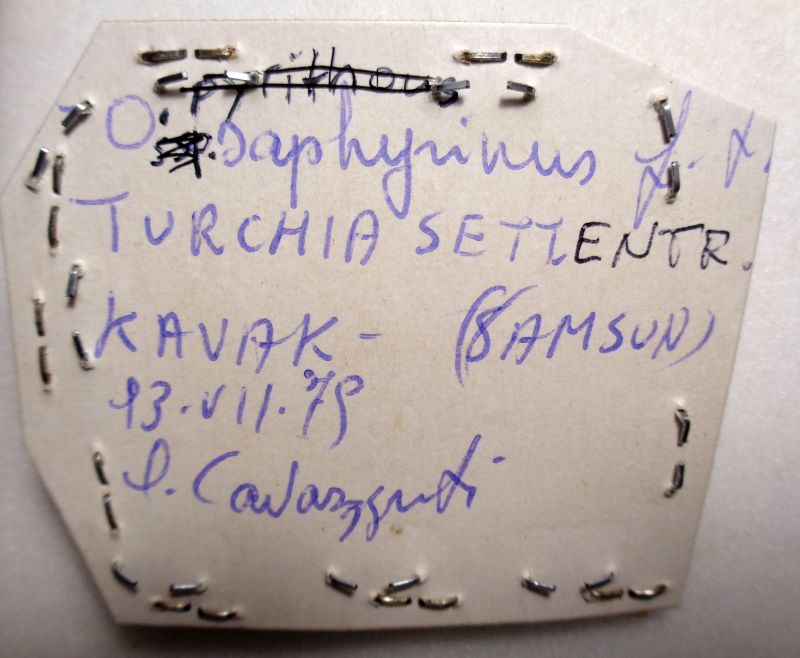 pyrithous
O. saphyrinus
TURCHIA SETTENTR.
KAVAK - (SAMSUN)
13.VII.79
P. Cavazzuti